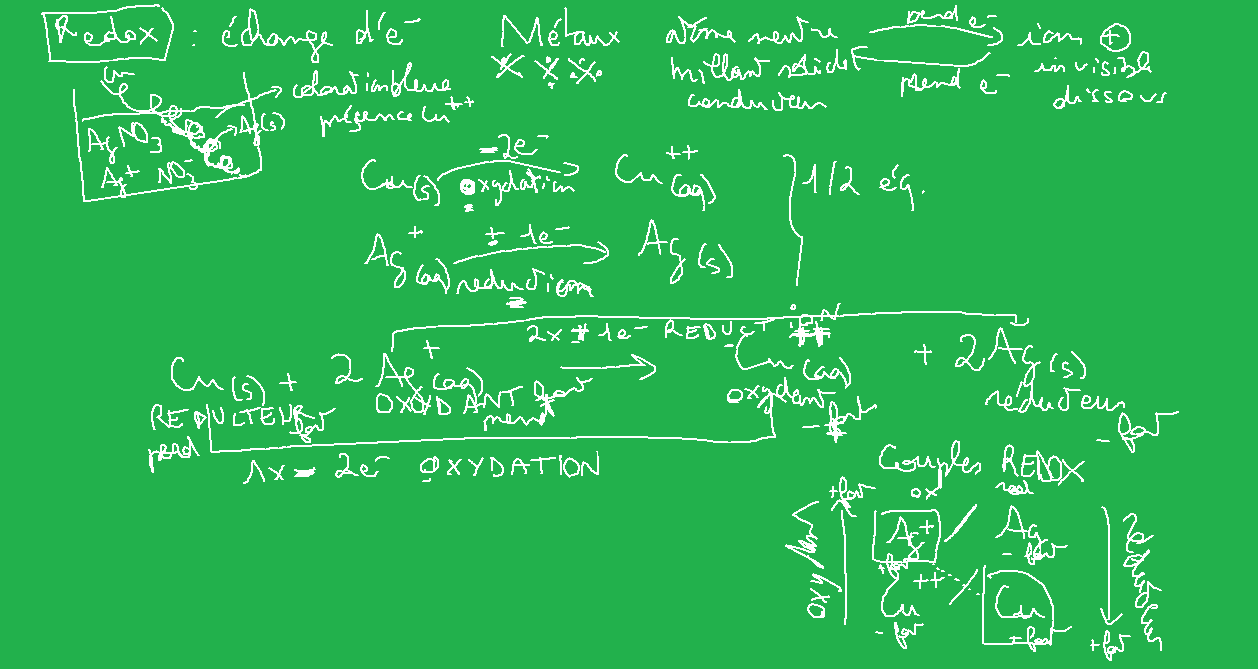 Redox : échange d'e⁻ Métaux atome neutre perd e⁻ ion +
X X X brillant solide prend e⁻ invisible
coloration bleue conducteur dissous
présence Cu⁺⁺
AgNO₃ Ag(s)
Ag⁺ NO₃⁻
Cu(s) - 2e⁻ oxydation Cu⁺⁺(aq) 1/2 éq.
Ag⁺(aq) + 1e⁻ réduction Ag(s)
2x + 1e⁻ REDUCTION
Cu(s) + 2 Ag⁺(aq) → Cu⁺⁺(aq) + 2 Ag(s)
REDUCTEUR fort OXYDANT fort oxydant - fort réducteur - fort
perd prend
1x - 2e⁻ OXYDATION
Couples REDOX
+ fort ox red
oxydant Ag⁺ / Ag réducteur
+ fort - fort
Cu⁺⁺ / Cu
- fort + fort + fort